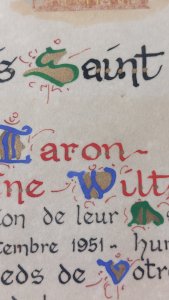 s Saint
Baron-
ne Wilt
ion de leur
cembre 1951 - hu
eds de Votre